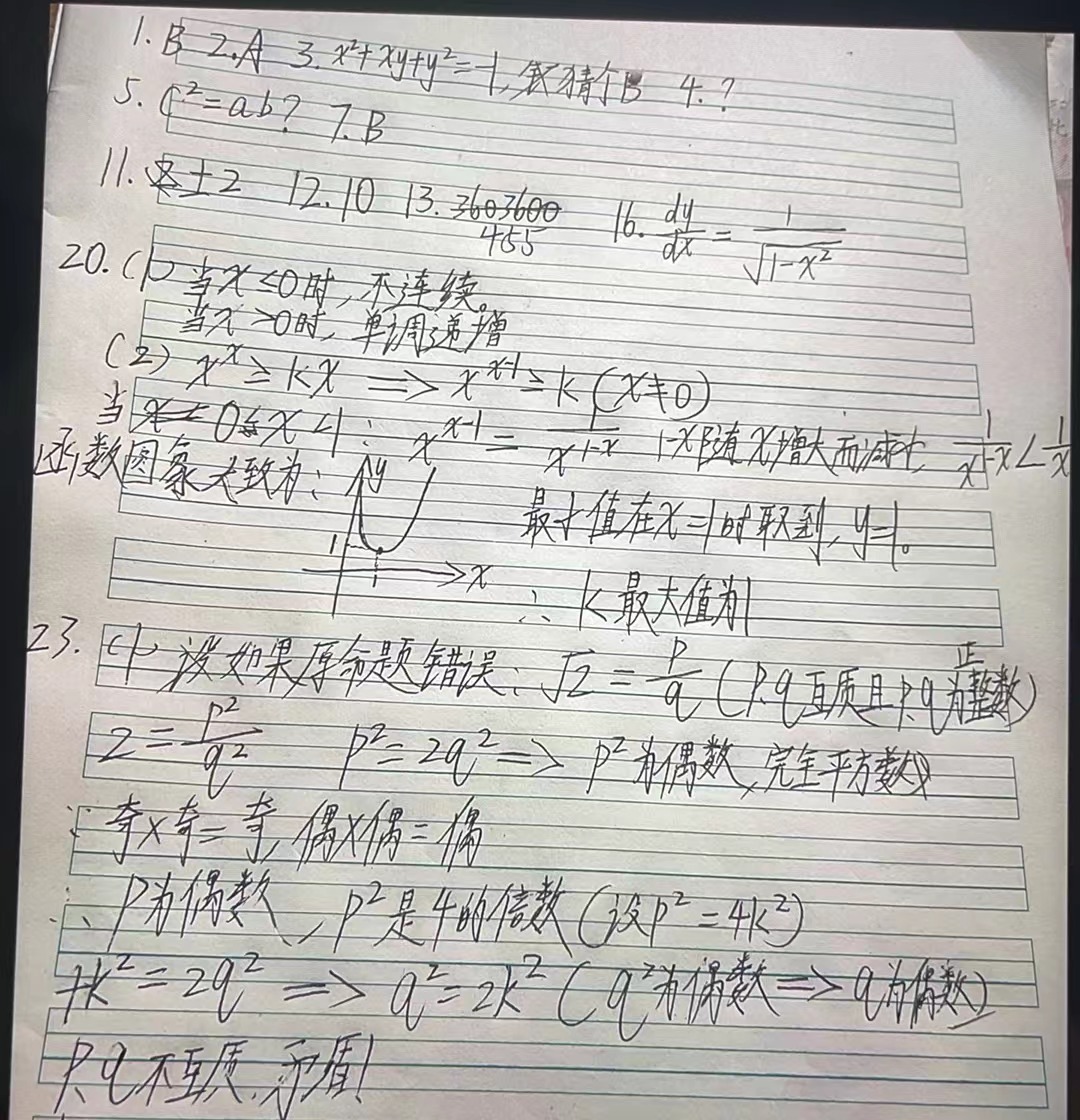 1. B 2. A 3. x²+xy+y²=-1, 我猜个B 4. ?
5. c²=ab? 7. B
11. ±2 12. 10 13. 3603600/455 16. dy/dx = 1/√(1-x²)
20. (1) 当x<0时, 不连续。
当x>0时, 单调递增
(2) x^x ≥ kx ⟹ x^(x-1) ≥ k (x≠0)
当 0≤x<1: x^(x-1) = 1/x^(1-x) 1-x随x增大而减小 1/x^(1-x) < 1/x
函数图象大致为: y 最小值在x=1时取到, y=1。
1 1 x
∴ k最大值为1
23. (1) 设如果原命题错误: √2 = p/q (p,q互质且p,q为正整数)
2 = p²/q² p²=2q² ⟹ p²为偶数、完全平方数
∵奇×奇=奇, 偶×偶=偶
∴ p为偶数, p²是4的倍数 (设p²=4k²)
4k²=2q² ⟹ q²=2k² (q²为偶数 ⟹ q为偶数)
p,q不互质, 矛盾!